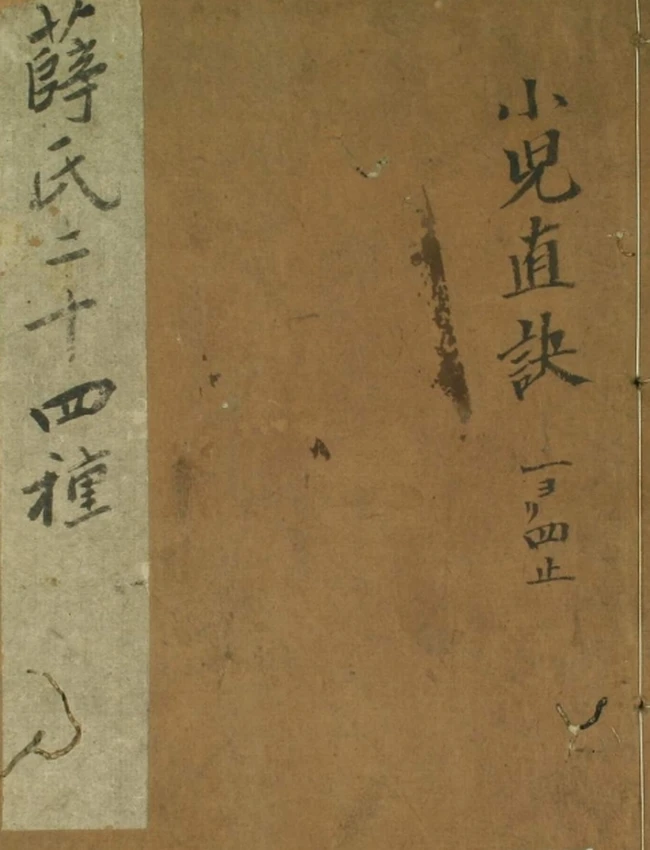 小児直訣
一ヨリ四止
薛氏二十四種